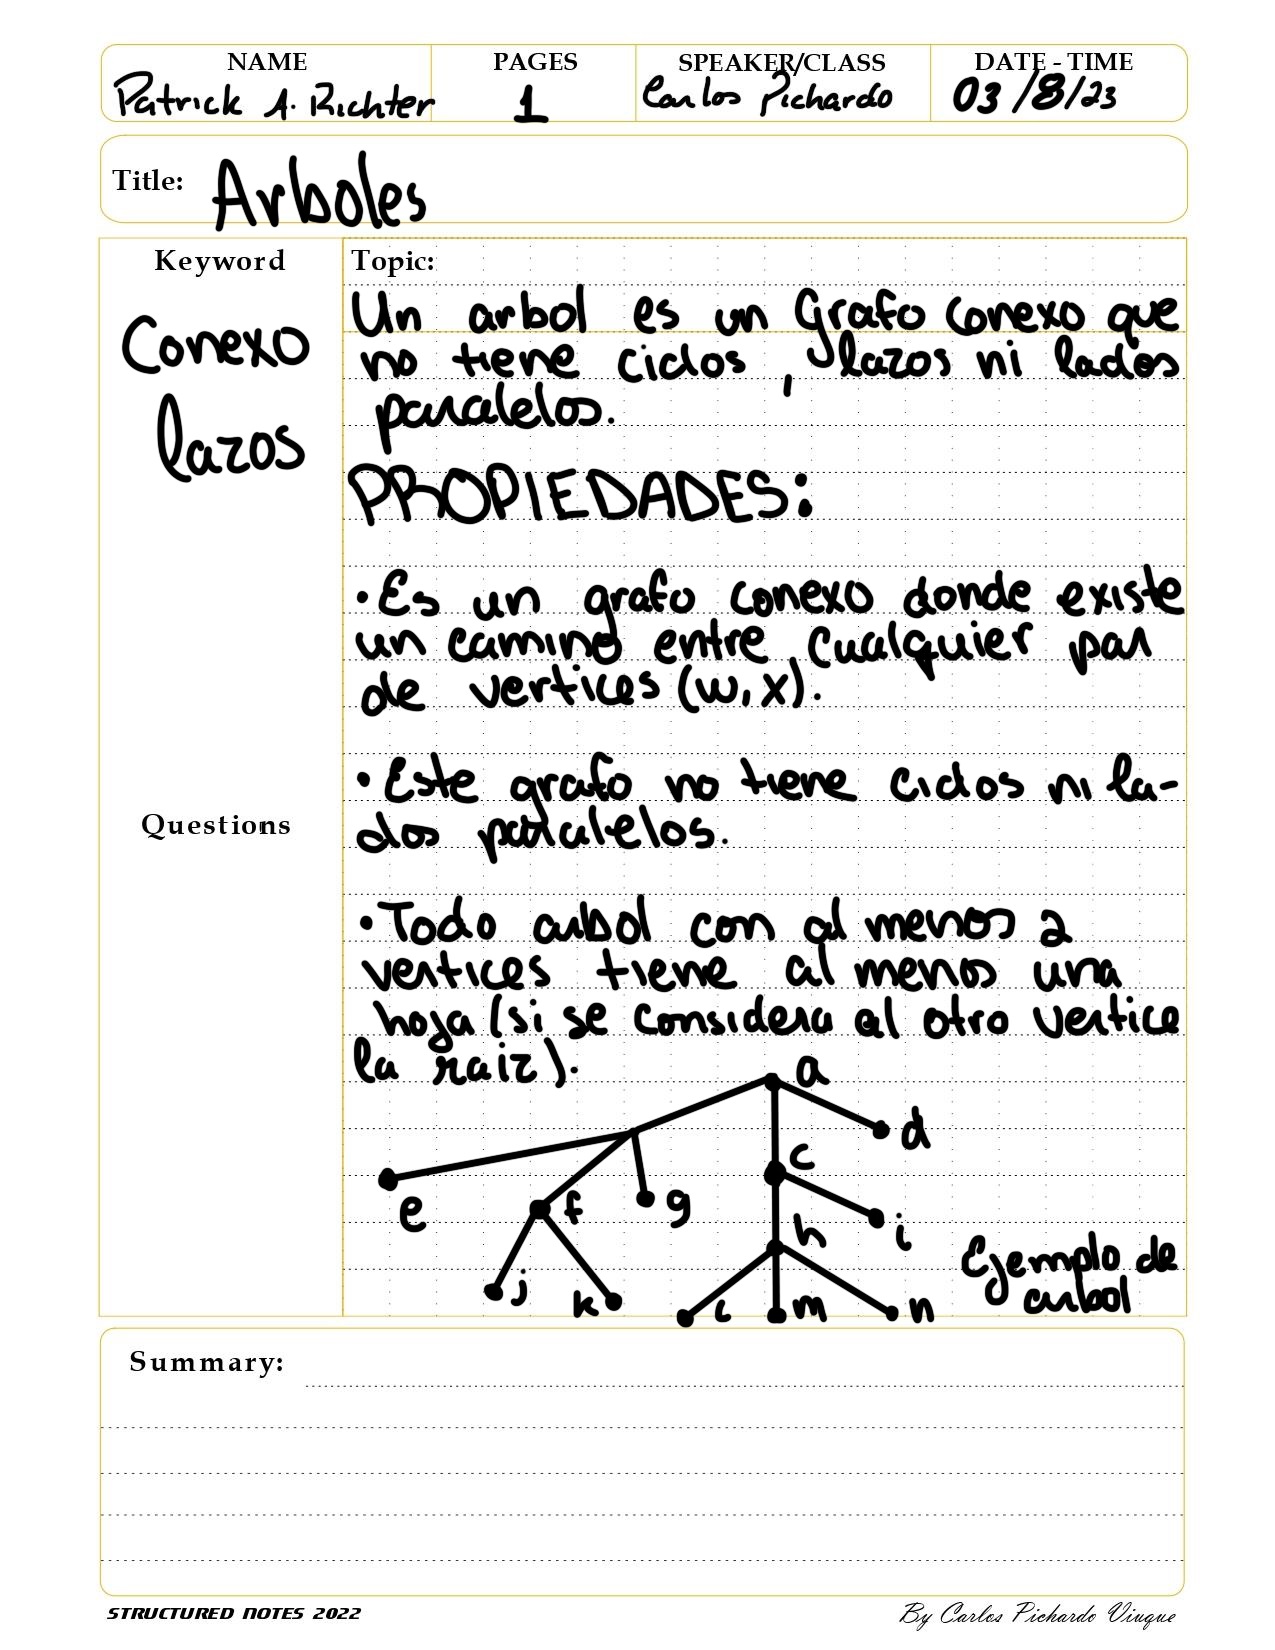 NAME PAGES SPEAKER/CLASS DATE - TIME
Patrick A. Richter 1 Carlos Pichardo 03/8/23
Title: Arboles
Keyword
Conexo
lazos
Questions
Topic:
Un arbol es un Grafo conexo que
no tiene ciclos , lazos ni lados
paralelos.
PROPIEDADES:
•Es un grafo conexo donde existe
un camino entre cualquier par
de vertices (w,x).
•Este grafo no tiene ciclos ni la-
dos paralelos.
•Todo arbol con al menos 2
vertices tiene al menos una
hoja (si se considera al otro vertice
la raiz).
a
d
c
e f g
h i
j k l m n
Ejemplo de
arbol
Summary:
STRUCTURED NOTES 2022 By Carlos Pichardo Viuque